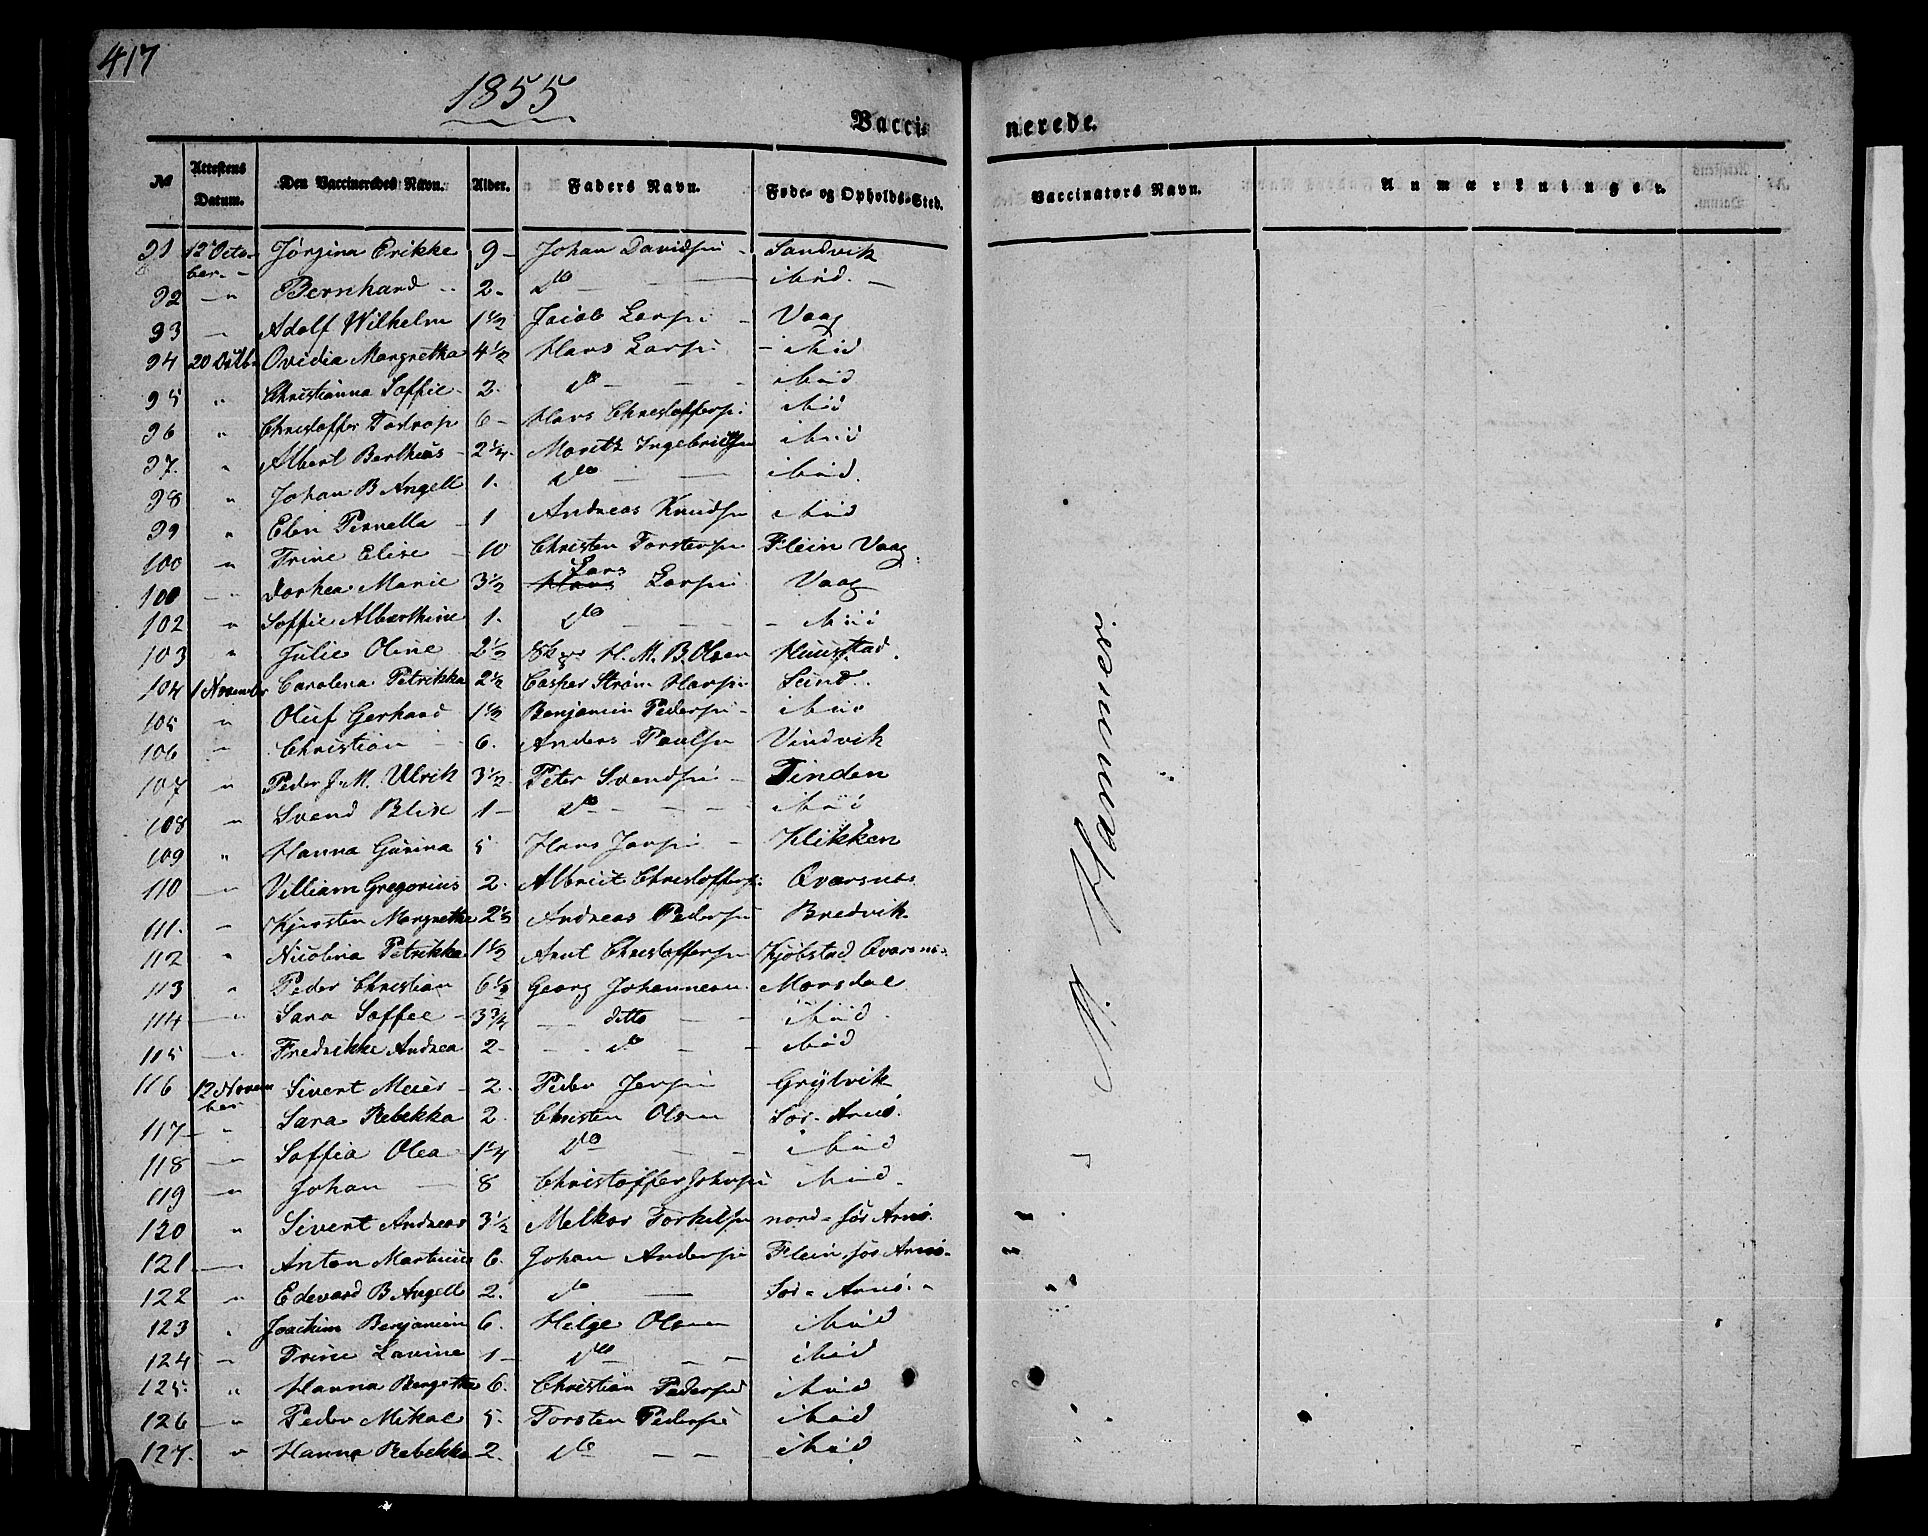 417
1855
Vacci- nerede.
No Attestens Datum. Den Vaccineredes Navn. Alder. Faders Navn. Føde- og Opholds-Sted. Vaccinators Navn. Anmærkninger.
91 12 Octo- Jørgina Erikke 9 - Johan Davidsen - Sandvik
ber -
92 - " Bernhard 2 - do - ibid. -
93 - Adolf Wilhelm 1 1/2 Jacob Larsen - Vaag
94 20 Octbr Ovidia Margretha 4 1/2 Hans Larsen - ibid
95 " Christianna Soffie 2 do - - - ibid
96 " Christoffer Tostrop 6 - Hans Christoffersen ibid
97. " Albert Bertheus 2 1/4 Moritz Ingebrigtsen ibid
98 " Johan B Angell 1. do - - ibid.
99 " Elen Pernella - 1 Andreas Knudsen ibid
100 " Trine Elise - 10 Christen Torstensen Flein Vaag
100 - " Dorhea Marie 3 1/2 Hans Lars Larsen Vaag
102 " Soffie Alberthine 1. do - - - ibid
103 " Julie Oline 2 1/2 H. M. B. Olsen Hunstad.
104 1 November Carolina Petrikka 2 1/2 Casper Strøm Harsen Sund.
105 " Oluf Gerhard 1 1/2 Benjamin Pedersen - ibid
106 " Christian - 6. Anders Paulsen Vindvik
107 " Peder J. M. Ulrik 3 1/2 Peter Svendsen - Tinden
108 " Svend Blix 1 - do - - - ibid
109 " Hanna Gurina 5 Hans Jensen - Klikken
110 - " Villiam Gregorius 2. Albrigt Christoffersen Qvarsnes
111. - Kjersten Margrethe 2 1/2 Andreas Pedersen Bredvik
112 " Nicolina Petrikka 1 1/2 Arnt Christoffersen Kjøbstad Qvarsnes
113 " Peder Christian 6 1/2 Georg Johannesen Morsdal
114 - " Sara Soffie - 3 3/4 - - ditto - - ibid -
115 - " Fredrikke Andrea 2 - - - do - - ibid
116 12 Novem Sivert Meier - 2. Peder Jensen Grylvik
ber
117 - " Sara Rebekka 2. Christen Olsen Sør-Arnø.
118 - " Soffia Olea 1 1/4 do - - - ibid
119 - " Johan - 8 Christoffer Johnsen ibid.
120 " Sivert Andreas 3 1/2 Melkor Torkelsen nord- sør Arnø.
121 - Anton Martinus 6. Johan Andersen Flein, sør Arnø-
122 " Edevard B Angell 2. do - Sør - Arnø. -
123 " Joachim Benjamin 6. Helge Olsen ibid
124 - " Trine Lavine 1 - do - - - ibid
125. " Hanna Bergetha 6. Christian Pedersen ibid
126 - " Peder Mikal 5. Torsten Pedersen ibid
127. " Hanna Rebekka 2. do - - - ibid